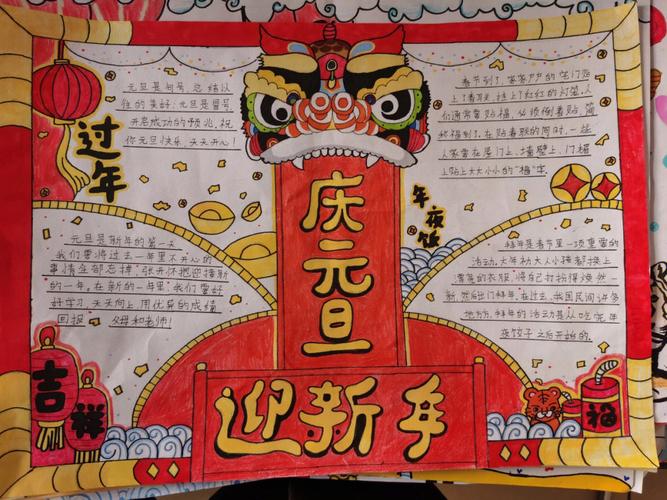 过年
元旦是句号 总结以
往的美好;元旦是冒号
开启成功的预兆,祝
你元旦快乐 天天开心!
春节到了,家家户户的门
上了春联,挂上了红红的灯笼,人
们通常会贴福,必须倒着贴,简
称福到了,在贴春联的同时,一些
人家会在屋门上,墙壁上,门楣
上贴上大大小小的"福"字。
庆元旦
年夜饭
元旦是新年的第一天
我们要将过去一年里不开心的
事情全部忘掉,张开怀抱迎接新
的一年,在新的一年里,我们要好
好学习,天天向上,用优异的成绩
回报 父母和老师!
拜年是春节里一项重要的
活动,大年初大人小孩都换上
漂亮的衣服,将自己打扮得焕然一
新,然后出门拜年,在过去,我国民间
地方,拜年的活动甚从吃完年
夜饺子之后开始的。
吉祥
迎新年
福